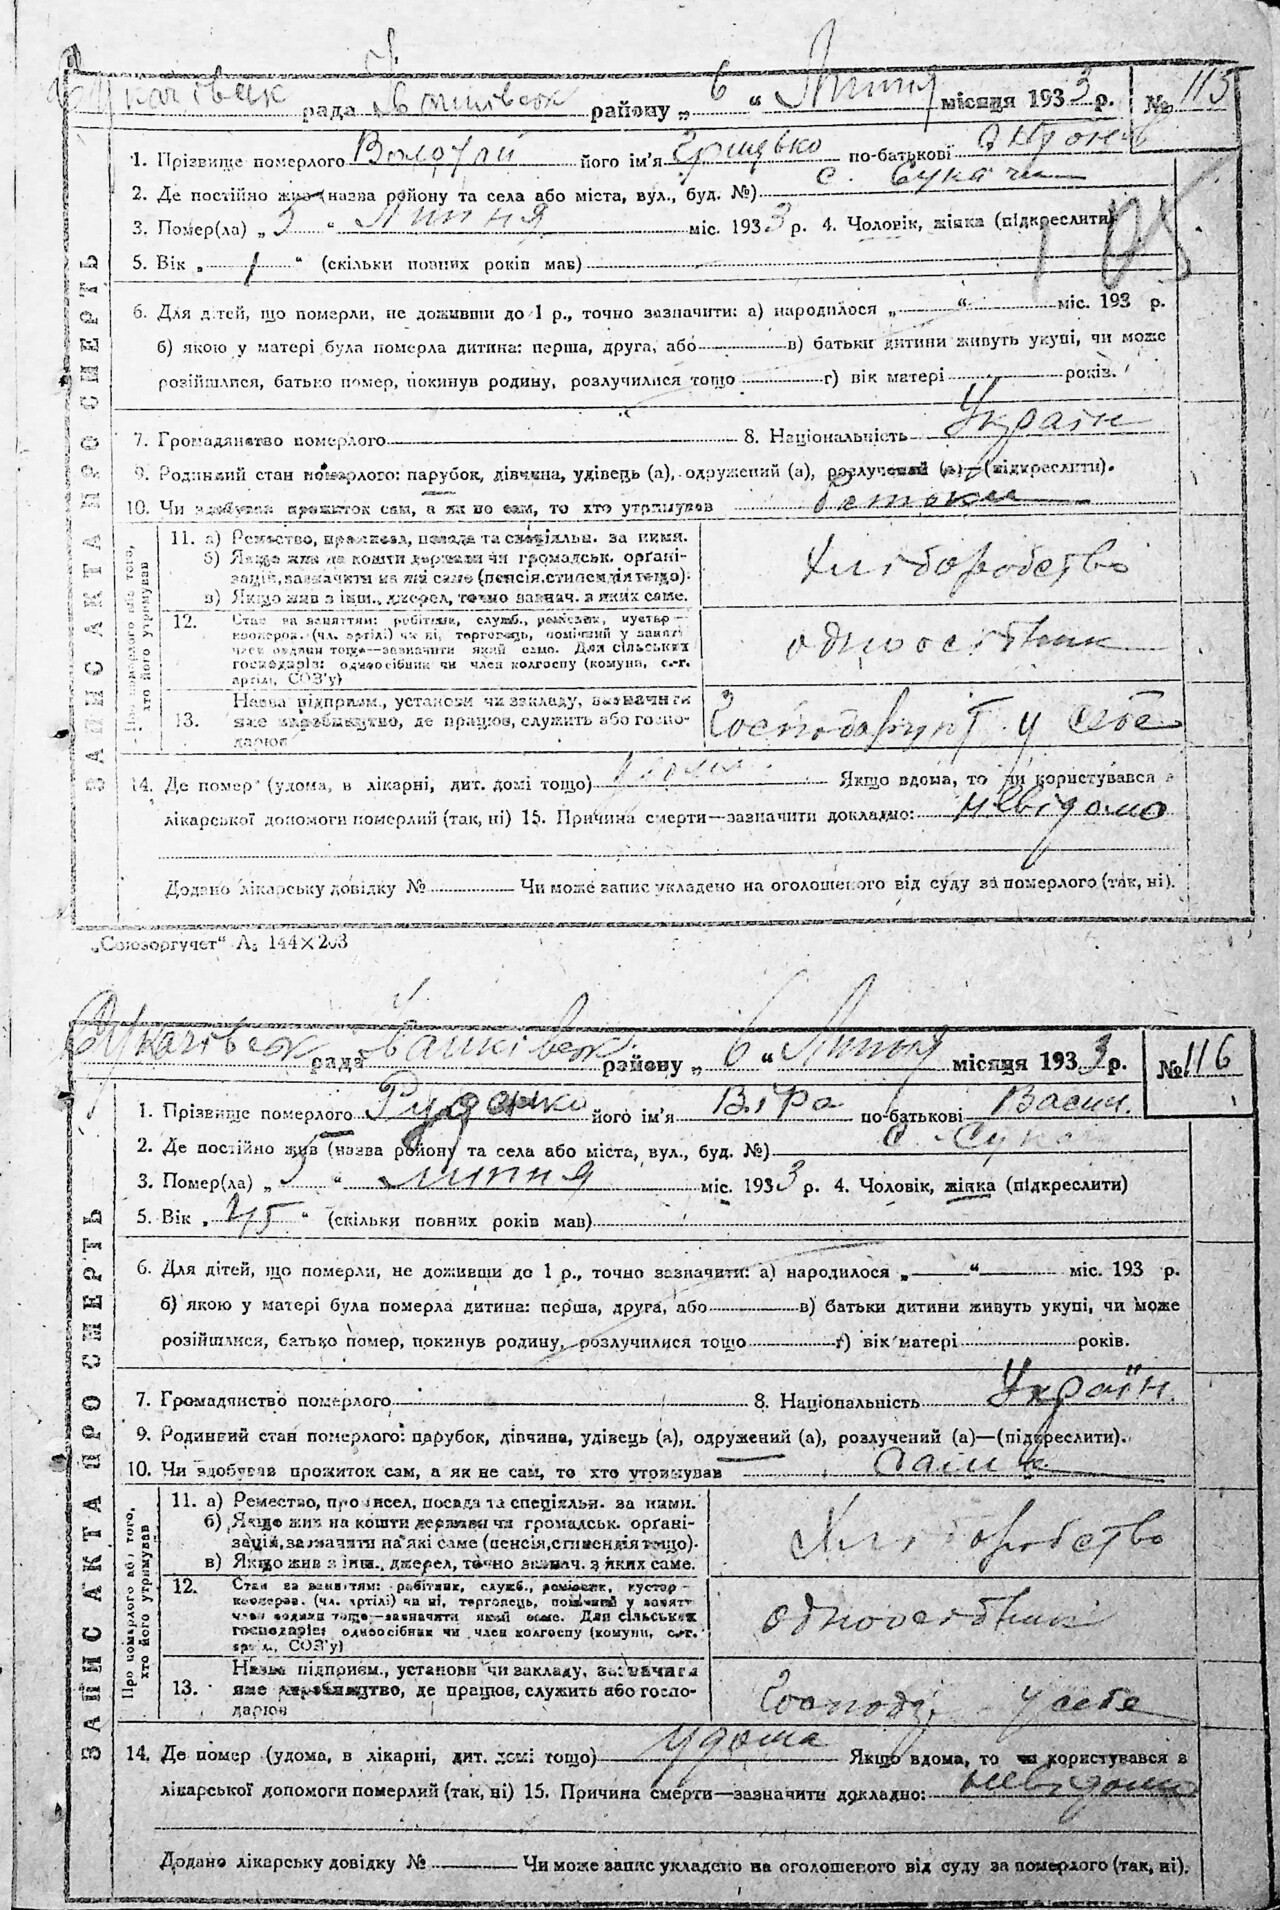 рада районну „ 6 “ Липня місяця 1933 р. № 115
ЗАПИС АКТА ПРО СМЕРТЬ
1. Прізвище померлого його ім'я Грицько по-батькові
2. Де постійно жив (назва району та села або міста, вул., буд. №) с. Сукачі
3. Помер(ла) „ 5 “ Липня міс. 1933 р. 4. Чоловік, жінка (підкреслити)
5. Вік „ 1 “ (скільки повних років мав)
6. Для дітей, що померли, не доживши до 1 р., точно зазначити: а) народилося „ “ міс. 193 р.
б) якою у матері була померла дитина: перша, друга, або в) батьки дитини живуть укупі, чи може
розійшлися, батько помер, покинув родину, розлучилися тощо г) вік матері років.
7. Громадянство померлого 8. Національність Україн
9. Родинний стан померлого: парубок, дівчина, удівець (а), одружений (а), розлучений (а)—(підкреслити).
10. Чи здобував прожиток сам, а як не сам, то хто утримував батьки
Про померлого або того, хто його утримував
11. а) Ремество, промисел, посада та спеціяльн. за ними.
б) Якщо жив на кошти держави чи громадськ. орґані-
зацій, зазначити на які саме (пенсія, стипендія тощо).
в) Якщо жив з інш. джерел, точно зазнач. з яких саме.
Хліборобство
12. Стан за заняттям: робітник, служб., ремісник, кустар—
кооперов. (чл. артілі) чи ні, торговець, помічний у занят.
член родини тощо—зазначити який саме. Для сільських
господарів: одноосібник чи член колгоспу (комуни, с.-г.
артілі, СОЗ'у)
одноосібник
13. Назва підприєм., установи чи закладу, зазначити
яке виробництво, де працює, служить або госпо-
дарює
Господарюют у себе
14. Де помер (удома, в лікарні, дит. домі тощо) удома Якщо вдома, то чи користувався з
лікарської допомоги померлий (так, ні) 15. Причина смерти—зазначити докладно: невідомо
Додано лікарську довідку № Чи може запис укладено на оголошеного від суду за померлого (так, ні).
„Союзоргучет“ А₅ 144×203
рада районну „ 6 “ Липня місяця 1933 р. № 116
ЗАПИС АКТА ПРО СМЕРТЬ
1. Прізвище померлого Руденко його ім'я Віра по-батькові Васил.
2. Де постійно жив (назва району та села або міста, вул., буд. №) с. Сукачі
3. Помер(ла) „ 5 “ липня міс. 1933 р. 4. Чоловік, жінка (підкреслити)
5. Вік „ “ (скільки повних років мав)
6. Для дітей, що померли, не доживши до 1 р., точно зазначити: а) народилося „ “ міс. 193 р.
б) якою у матері була померла дитина: перша, друга, або в) батьки дитини живуть укупі, чи може
розійшлися, батько помер, покинув родину, розлучилися тощо г) вік матері років.
7. Громадянство померлого 8. Національність Україн.
9. Родинний стан померлого: парубок, дівчина, удівець (а), одружений (а), розлучений (а)—(підкреслити).
10. Чи здобував прожиток сам, а як не сам, то хто утримував
Про померлого або того, хто його утримував
11. а) Ремество, промисел, посада та спеціяльн. за ними.
б) Якщо жив на кошти держави чи громадськ. орґані-
зацій, зазначити на які саме (пенсія, стипендія тощо).
в) Якщо жив з інш. джерел, точно зазнач. з яких саме.
Хліборобство
12. Стан за заняттям: робітник, служб., ремісник, кустар—
кооперов. (чл. артілі) чи ні, торговець, помічний у занят.
член родини тощо—зазначити який саме. Для сільських
господарів: одноосібник чи член колгоспу (комуни, с.-г.
артілі, СОЗ'у)
одноосібник
13. Назва підприєм., установи чи закладу, зазначити
яке виробництво, де працює, служить або госпо-
дарює
Господ. у себе
14. Де помер (удома, в лікарні, дит. домі тощо) удома Якщо вдома, то чи користувався з
лікарської допомоги померлий (так, ні) 15. Причина смерти—зазначити докладно: невідомо
Додано лікарську довідку № Чи може запис укладено на оголошеного від суду за померлого (так, ні).